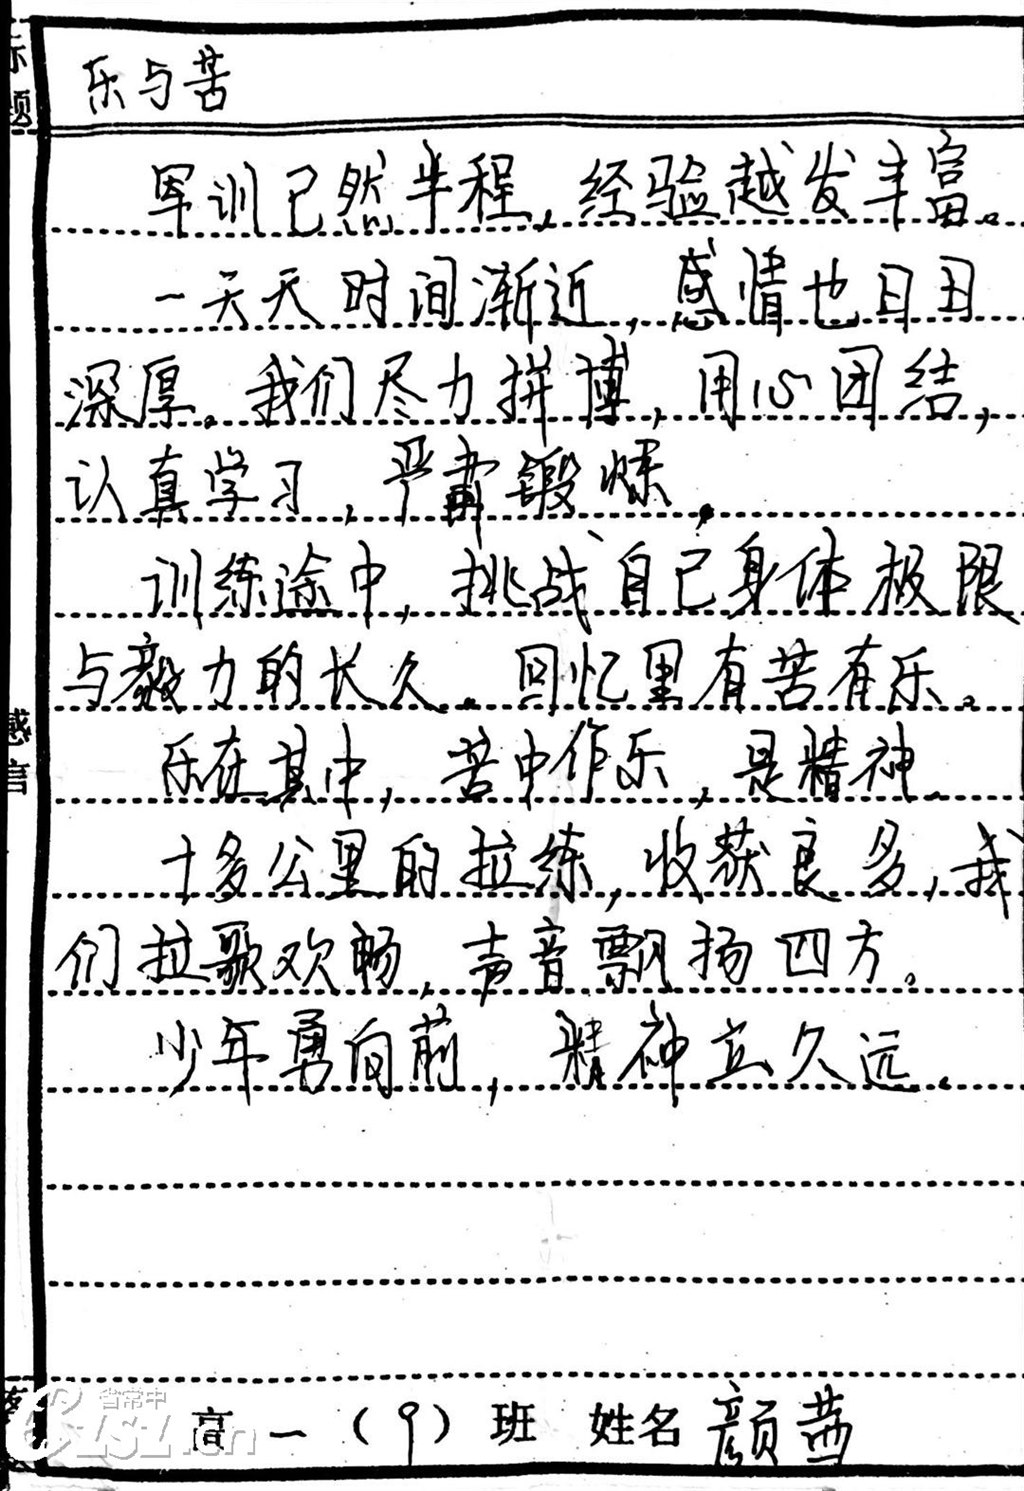 标题
乐与苦
军训已然半程，经验越发丰富。
一天天时间渐近，感情也日丑
深厚。我们尽力拼博，用心团结，
认真学习，严肃锻炼，
训练途中，挑战自己身体极限
与毅力的长久。回忆里有苦有乐。
感言
乐在其中，苦中作乐，是精神。
十多公里的拉练，收获良多，我
们拉歌欢畅，声音飘扬四方。
少年勇向前，精神立久远。
省常中
CZSSZ.cn
高一（9）班 姓名 颜茜